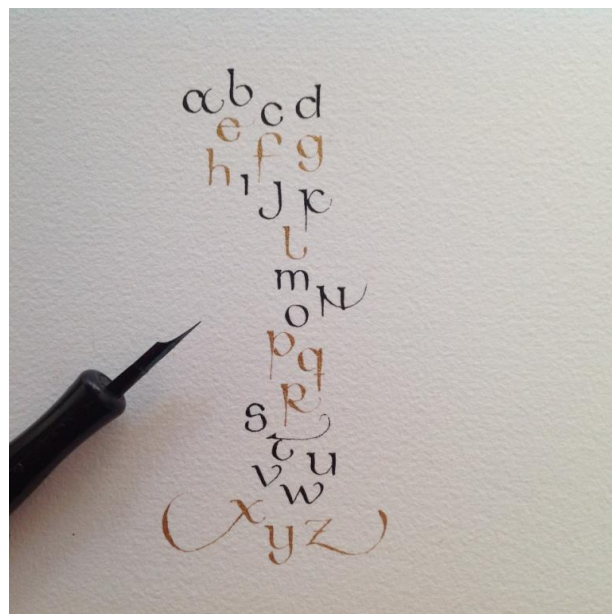 a b c d
e f g
h i j k
l
m N
o
p q
R
s t u
v w
x y z